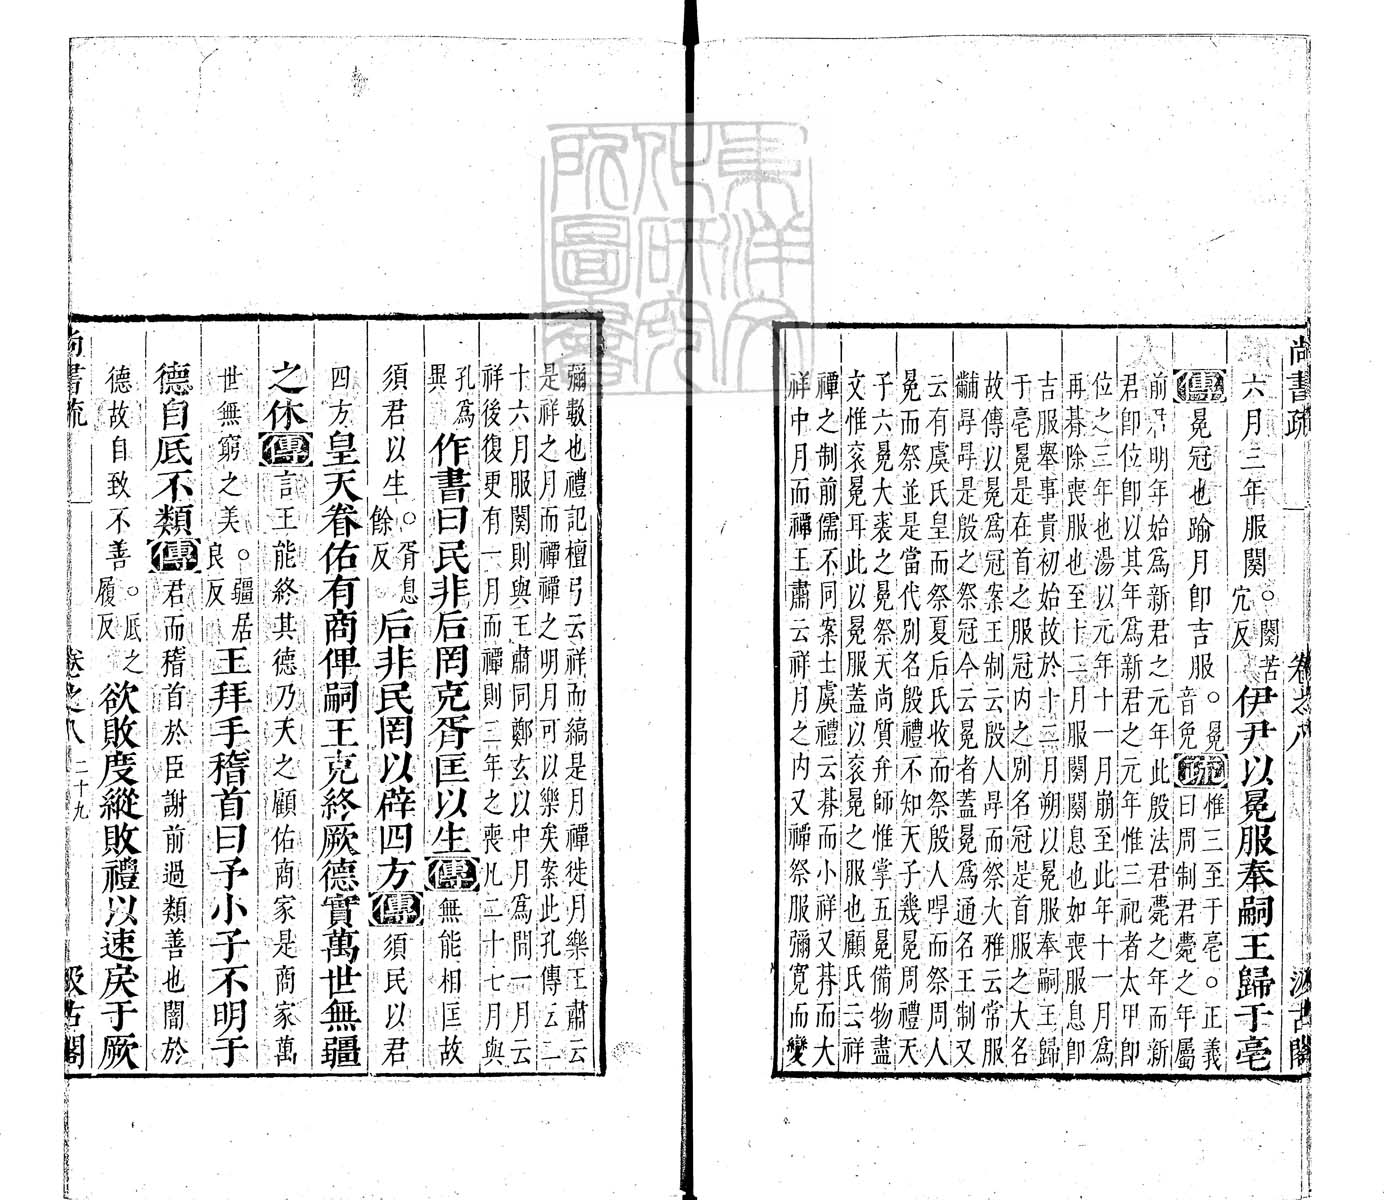 尚書疏 卷之八 汲古閣
六月三年服闋。闋苦穴反伊尹以冕服奉嗣王歸于亳
傳冕冠也踰月卽吉服。冕音免疏惟三至于亳。正義曰周制君薨之年屬
前君明年始爲新君之元年此殷法君薨之年而新
君卽位卽以其年爲新君之元年惟三祀者太甲卽
位之三年也湯以元年十一月崩至此年十一月爲
再朞除喪服也至十二月服闋闋息也如喪服息卽
吉服舉事貴初始故於十二月朔以冕服奉嗣王歸
于亳冕是在首之服冠内之别名冠是首服之大名
故傳以冕爲冠案王制云殷人冔而祭大雅云常服
黼冔冔是殷之祭冠今云冕者蓋冕爲通名王制又
云有虞氏皇而祭夏后氏收而祭殷人冔而祭周人
冕而祭並是當代别名殷禮不知天子幾冕周禮天
子六冕大裘之冕祭天尚質弁師惟掌五冕備物盡
文惟衮冕耳此以冕服蓋以衮冕之服也顧氏云祥
禫之制前儒不同案士虞禮云朞而小祥又朞而大
祥中月而禫王肅云祥月之内又禫祭服彌寬而變
彌數也禮記檀弓云祥而縞是月禫徙月樂王肅云
是祥之月而禫禫之明月可以樂矣案此孔傳云二
十六月服闋則與王肅同鄭玄以中月爲間一月云
祥後復更有一月而禫則三年之喪凡二十七月與
孔爲異作書曰民非后罔克胥匡以生傳無能相匡故
須君以生。胥息餘反后非民罔以辟四方傳須民以君
四方皇天眷佑有商俾嗣王克終厥德實萬世無疆
之休傳言王能終其德乃天之顧佑商家是商家萬
世無窮之美。疆居良反王拜手稽首曰予小子不明于
德自厎不類傳君而稽首於臣謝前過類善也闇於
德故自致不善。厎之履反欲敗度縱敗禮以速戾于厥
尚書疏 卷之八 二十九 汲古閣
東洋文化研究所圖書